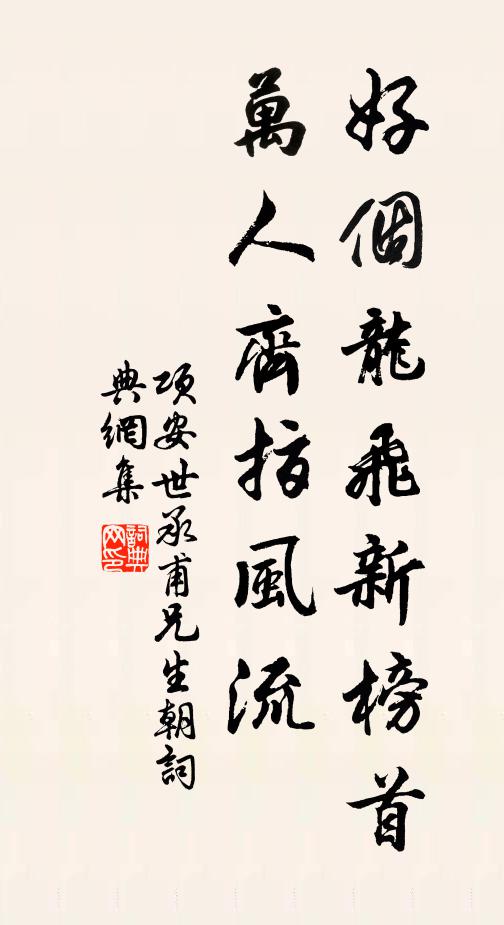 好個龍飛新榜首
萬人齊指風流
項安世承甫兄生朝詞
典網集
詞典
网印